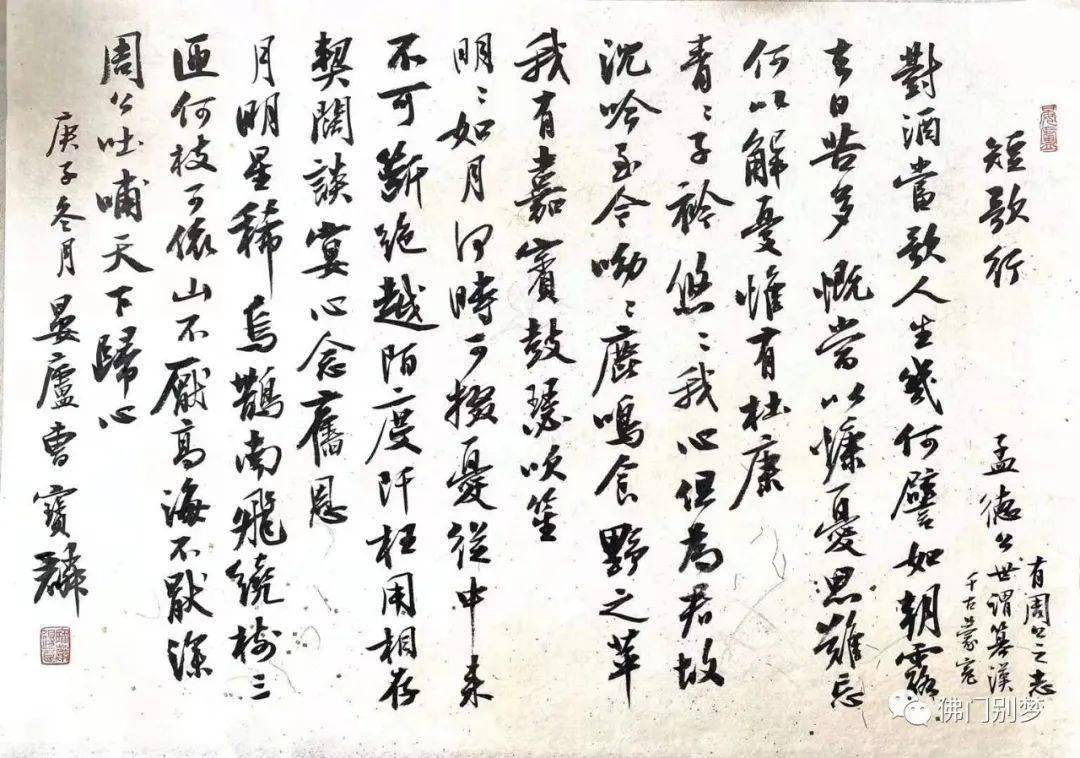 短歌行
孟德公世谓篡漢
有周公之志
千古蒙冤
對酒當歌人生幾何譬如朝露
去日苦多慨當以慷憂思難忘
何以解憂惟有杜康
青〻子衿悠〻我心但為君故
沉吟至今呦〻鹿鳴食野之苹
我有嘉賓鼓瑟吹笙
明〻如月何時可掇憂從中来
不可斷絶越陌度阡枉用相存
契闊談宴心念舊恩
月明星稀烏鵲南飛繞樹三
匝何枝可依山不厭高海不厭深
周公吐哺天下歸心
庚子冬月晏廬曹寶麟
佛门别梦